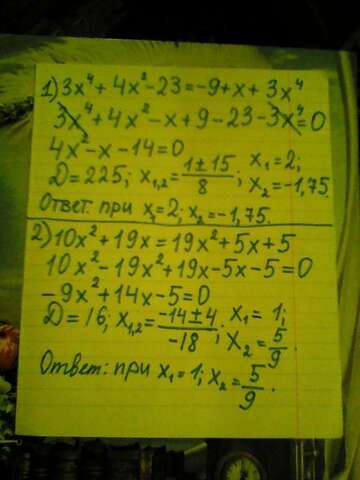 1) 3x⁴ + 4x² - 23 = -9 + x + 3x⁴
3x⁴ + 4x² - x + 9 - 23 - 3x⁴ = 0
4x² - x - 14 = 0
D = 225; x₁,₂ = (1 ± 15)/8; x₁ = 2; x₂ = -1,75.
Ответ: при x₁ = 2; x₂ = -1,75.
2) 10x² + 19x = 19x² + 5x + 5
10x² - 19x² + 19x - 5x - 5 = 0
-9x² + 14x - 5 = 0
D = 16; x₁,₂ = (-14 ± 4)/-18; x₁ = 1; x₂ = 5/9.
Ответ: при x₁ = 1; x₂ = 5/9.